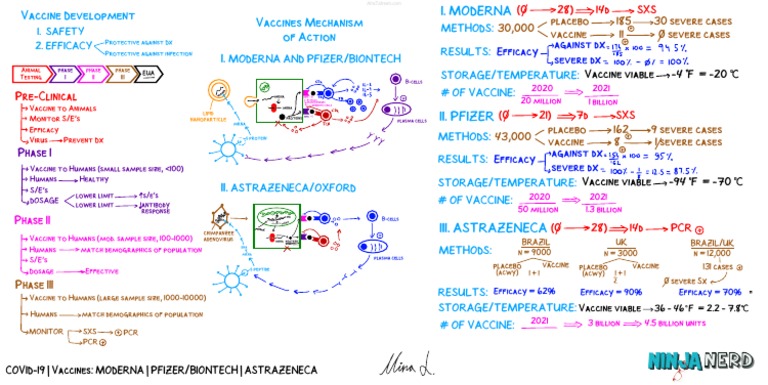 Vaccine Development
1. Safety
2. Efficacy
Protective against DX
Protective against infection
Animal Testing
Phase I
Phase II
Phase III
EUA
Pre-Clinical
Vaccine to Animals
Monitor S/E's
Efficacy
Virus → Prevent DX
Phase I
Vaccine to Humans (small sample size, <100)
Humans → Healthy
S/E's
Dosage
Lower limit → ↑S/E's
Lower limit → ↓Antibody response
Phase II
Vaccine to Humans (mod. sample size, 100-1000)
Humans → match demographics of population
S/E's
Dosage → Effective
Phase III
Vaccine to Humans (large sample size, 1000-10000)
Humans → match demographics of population
Monitor → SXS → ⊕ PCR
PCR ⊕
Vaccines Mechanism
of Action
I. Moderna and Pfizer/BioNTech
Lipid nanoparticle
B-cells
Plasma cells
II. AstraZeneca/Oxford
Chimpanzee adenovirus
B-cells
Plasma cells
I. Moderna (0 → 28) → 14D → SXS
Methods: 30,000
Placebo → 185 → 30 severe cases
Vaccine → 11 → 0 severe cases
Results: Efficacy
Against DX = x 100 = 94.5%
Severe DX = 100% - 0/ = 100%
Storage/Temperature: Vaccine viable → -4 °F = -20 °C
# of Vaccine: 2020 20 million ⇒ 2021 1 billion
II. Pfizer (0 → 21) → 7D → SXS
Methods: 43,000
Placebo → 162 → 9 severe cases
Vaccine → 8 → 1 severe cases
Results: Efficacy
Against DX = x 100 = 95%
Severe DX = 100% - = 87.5%
Storage/Temperature: Vaccine viable → -94 °F = -70 °C
# of Vaccine: 2020 50 million ⇒ 2021 1.3 billion
III. AstraZeneca (0 → 28) → 14D → PCR ⊕
Methods:
Brazil UK Brazil/UK
N = 9000 N = 3000 N = 12,000
Placebo (ACWY) Vaccine 1+1
Placebo (ACWY) Vaccine 1+1
131 cases ⊕
0 severe SX
Results: Efficacy = 62% Efficacy = 90% Efficacy = 70%
Storage/Temperature: Vaccine viable → 36 - 46 °F = 2.2 - 7.8 °C
# of Vaccine: 2021 ⇒ 3 billion ⇒ 4.5 billion units
COVID-19 | Vaccines: Moderna | Pfizer/BioNTech | AstraZeneca
NINJA NERD